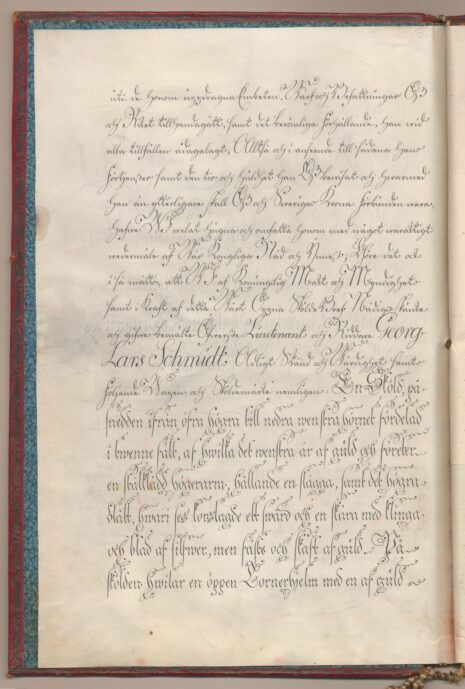 uti de honom updragna Embeten, Wärf och Beskattningar Oss
och Riket tillhandagått, samt det berömliga förhållande, han wid
alla tillfällen ådagalagt; Alltså och i anseende till sådane hans
förtjenster samt den tro och huldhet han Oss bewisat och hwarmed
han än ytterligare skall Oss och Sweriges Krona förbunden wara,
hafwe Wi welat hugna och omfatta honom med något waraktigt
wedermäle af Wår Kongliga Nåd och Ynnest; Giöre det ock
i så måtto, att Wi af Konunglig Makt och Myndighet
samt i Kraft af detta Wårt Öppna Sköldebref Nådigst skänke
och gifwe bemälte Öfwerste Lieutenant och Riddare Georg
Lars Schmidt; Adeligit Stånd och Wärdighet samt
följande Wapen och Sköldemärke nemligen: En Sköld, på
snedden ifrån öfra högra till nedra wenstra hörnet fördelad
i twenne fält, af hwilka det wenstra är af guld och företer
en stålklädd högerarm, hållande en slägga, samt det högra
blått, hwari ses korslagde ett swärd och en skära med klinga
och blad af silfwer, men fäste och skaft af guld. På
skölden hwilar en öppen Tornerhjelm med en af guld